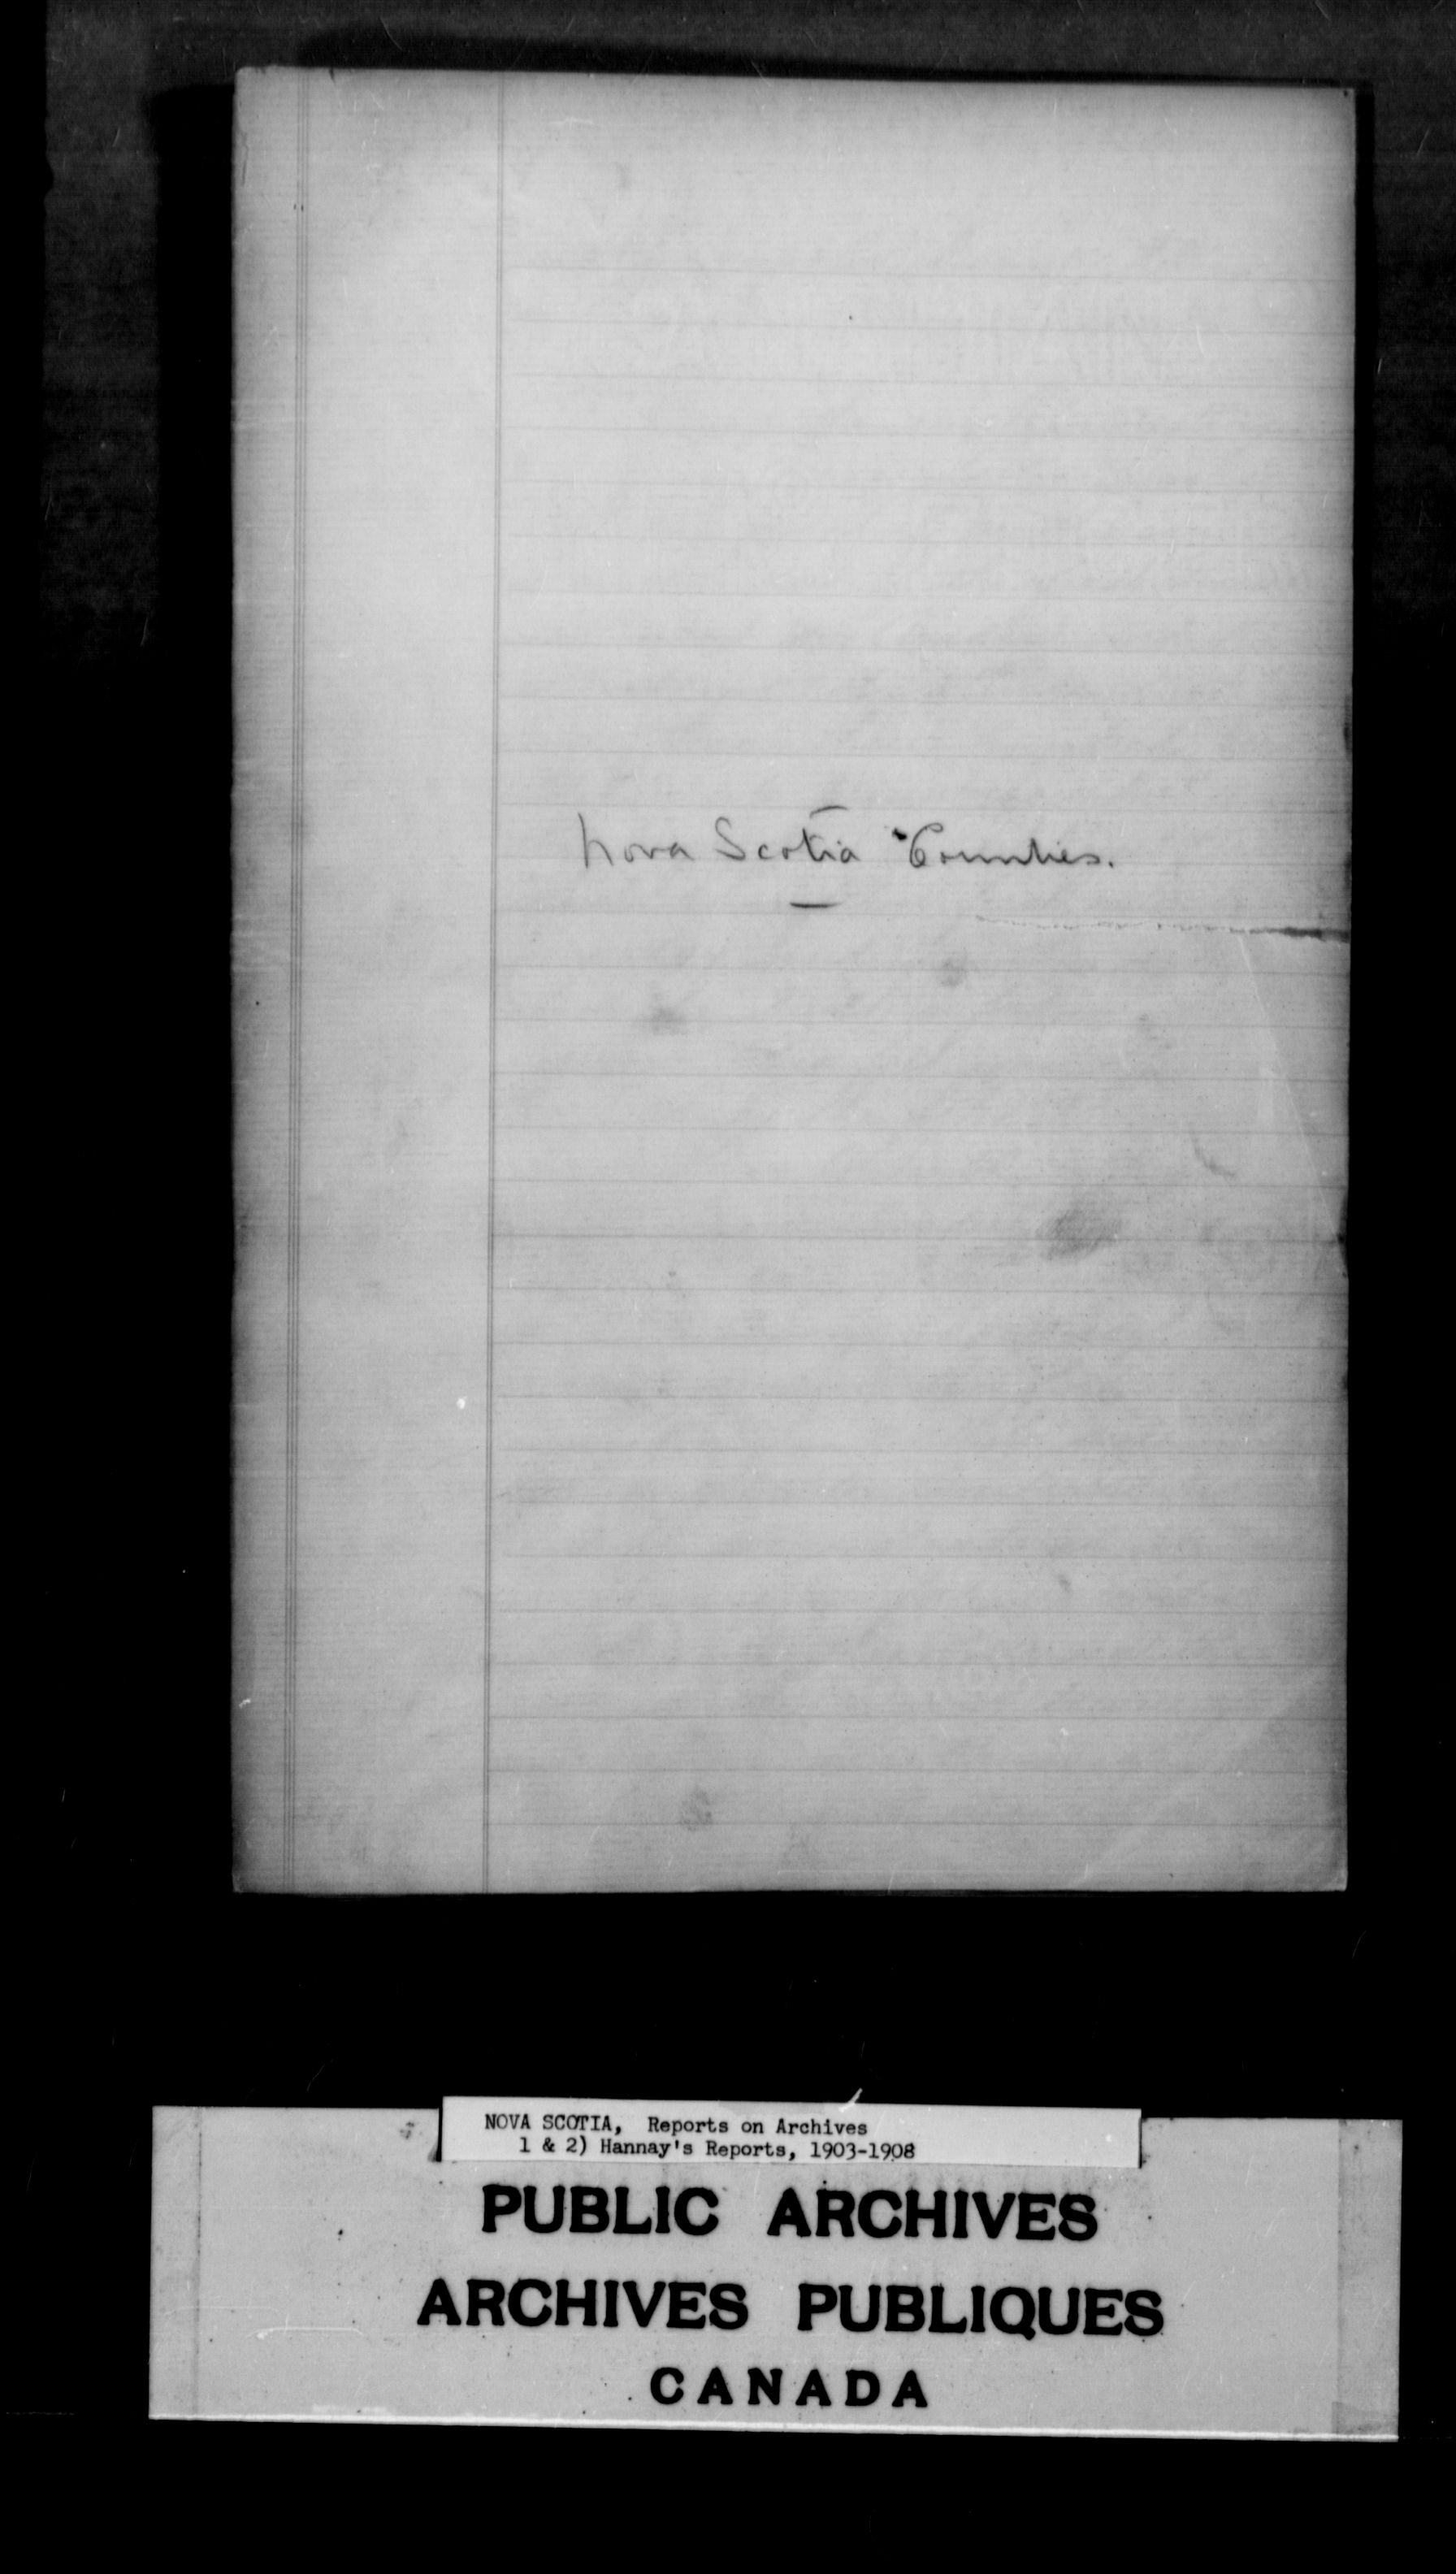 Nova Scotia Counties.
NOVA SCOTIA, Reports on Archives
1 & 2) Hannay's Reports, 1903-1908
PUBLIC ARCHIVES
ARCHIVES PUBLIQUES
CANADA